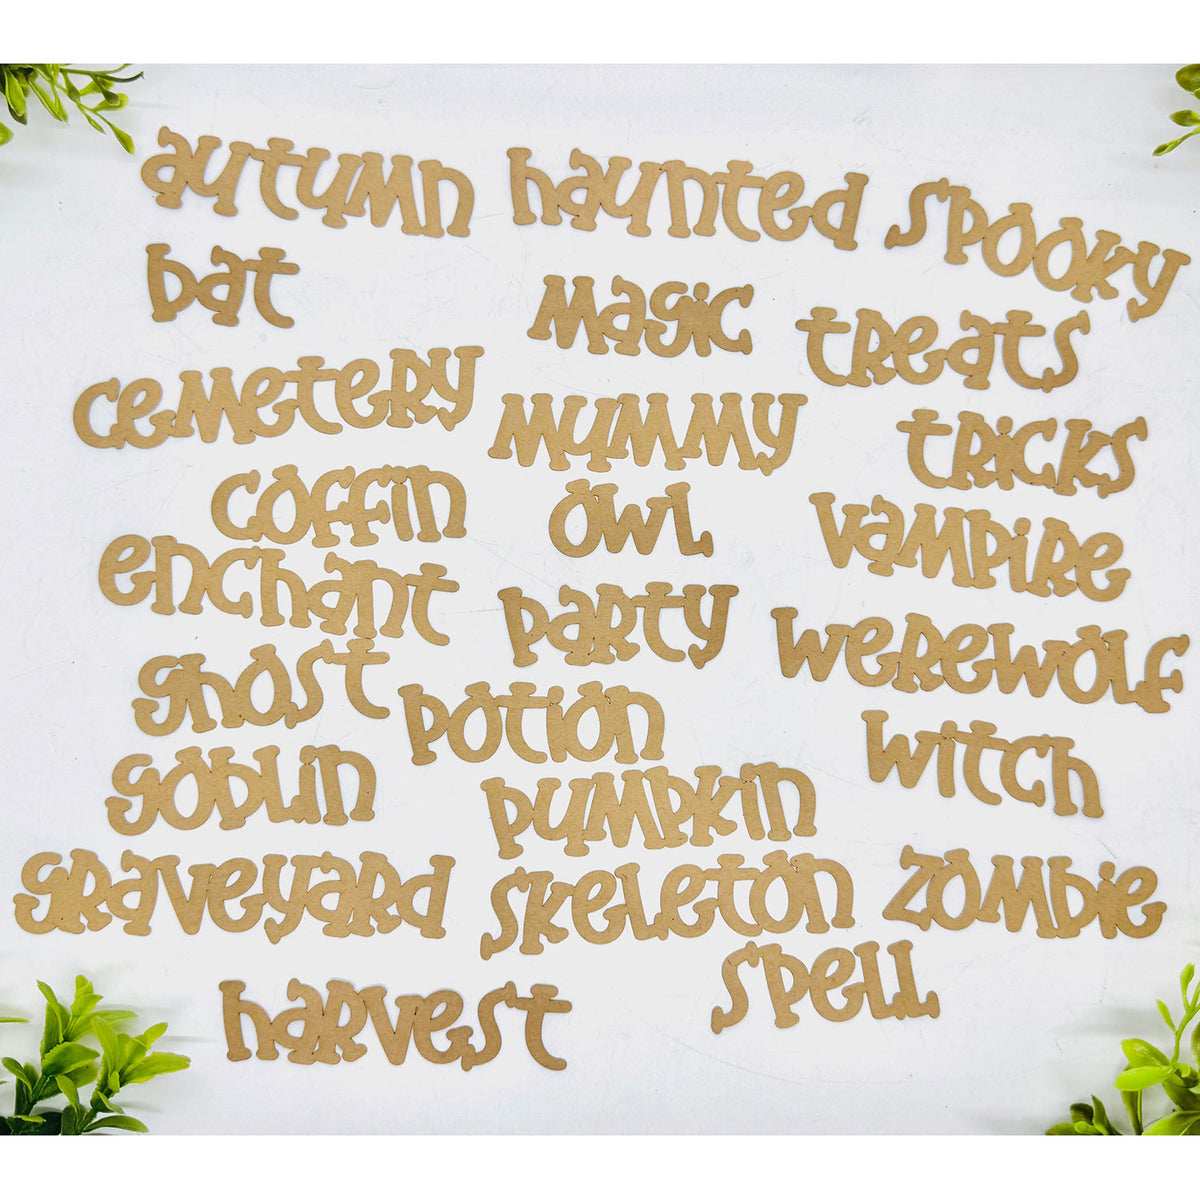 autumn
haunted
spooky
bat
magic
treats
cemetery
mummy
tricks
coffin
owl
vampire
enchant
party
werewolf
ghost
potion
witch
goblin
pumpkin
graveyard
skeleton
zombie
harvest
spell